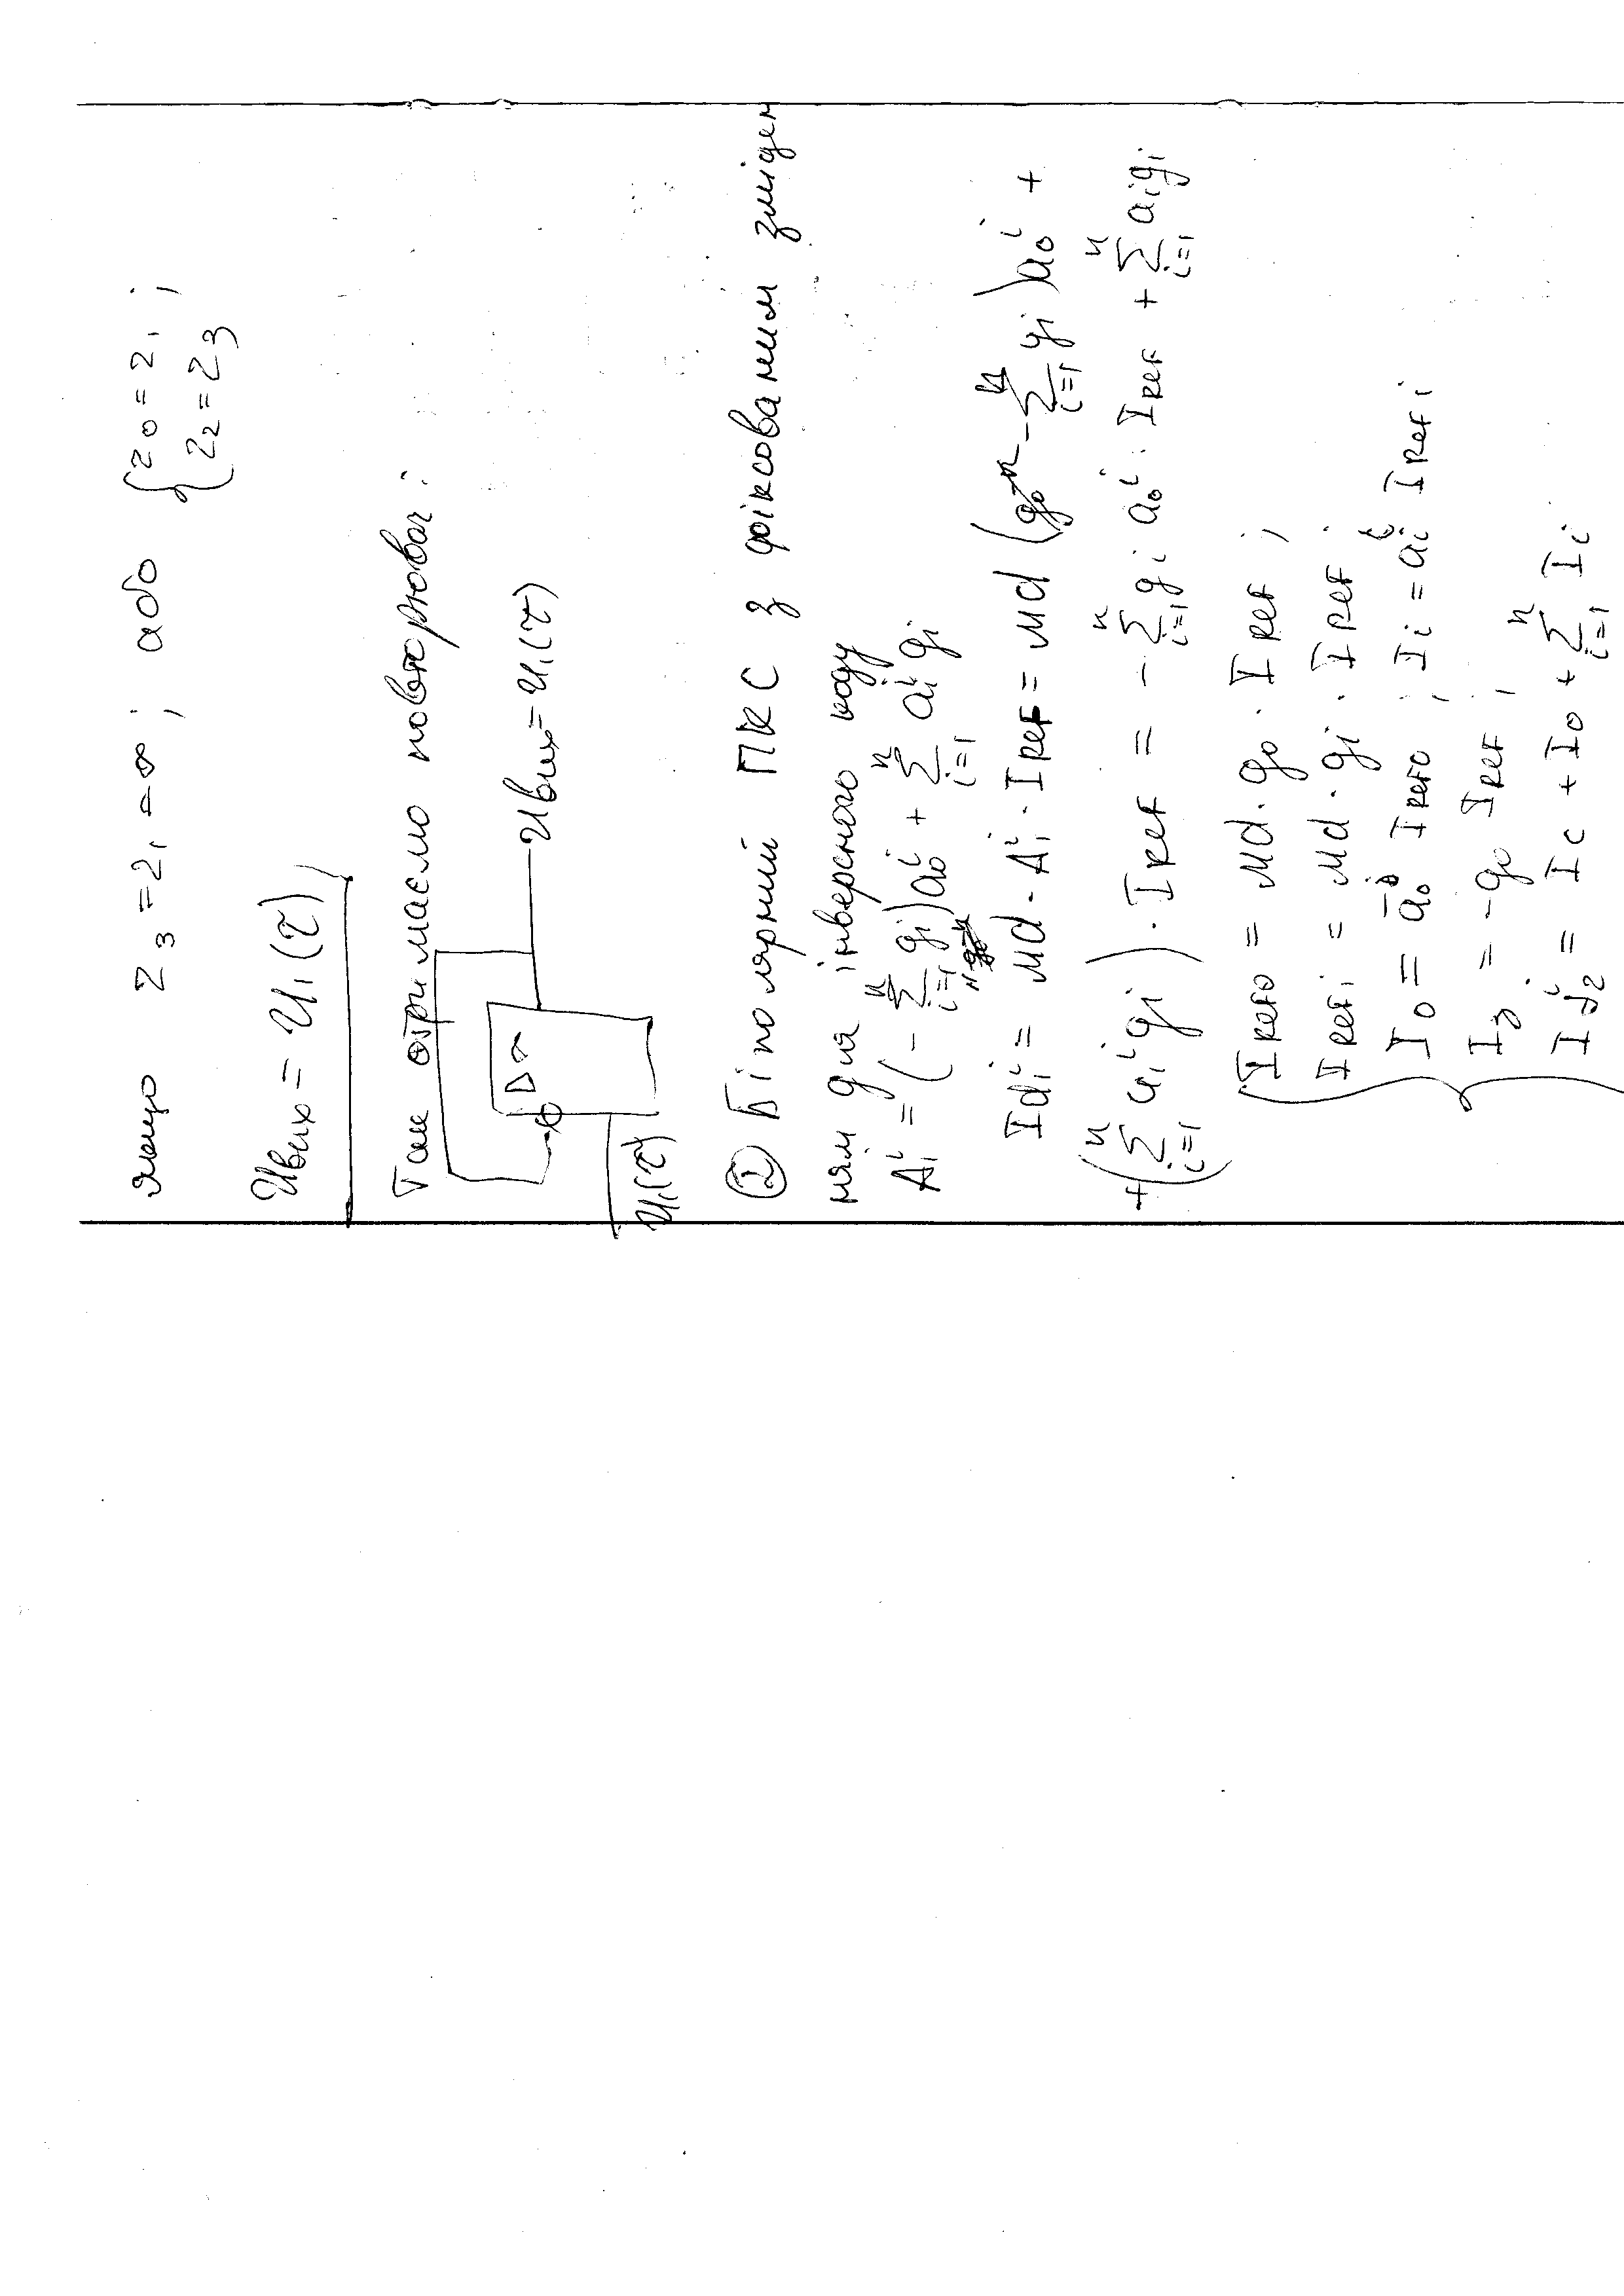 якщо Z₃ = Z₁ = ∞ ; або { Z₀ = Z₁ ; Z₂ = Z₃
Uвих = U₁(τ)
Так отримаємо повторювач :
D ∞
Uвих = U₁(τ)
U₁(τ)
② Біполярний ПКС з фіксованим зміщен
ням для інверсного коду
Aᵢⁱ = (− Σᵢ₌₁ⁿ gᵢ)a₀ⁱ + Σᵢ₌₁ⁿ aᵢⁱ gᵢ
Idᵢⁱ = Md · Aᵢⁱ · I REF = Md ( − Σᵢ₌₁ⁿ gᵢ)a₀ⁱ +
+(Σᵢ₌₁ⁿ aᵢⁱgᵢ) · I REF = − Σᵢ₌₁ⁿ gᵢ a₀ⁱ · I REF + Σᵢ₌₁ⁿ aᵢgᵢ
I REF0 = Md · g₀ · I REF ;
I REF i = Md · gᵢ · I REF ;
I₀ = a₀ I REF0 ; Iᵢ = aᵢ I REF i
I₃ = −g₀ I REF ;
= I c + I₀ + Σᵢ₌₁ⁿ Iᵢ